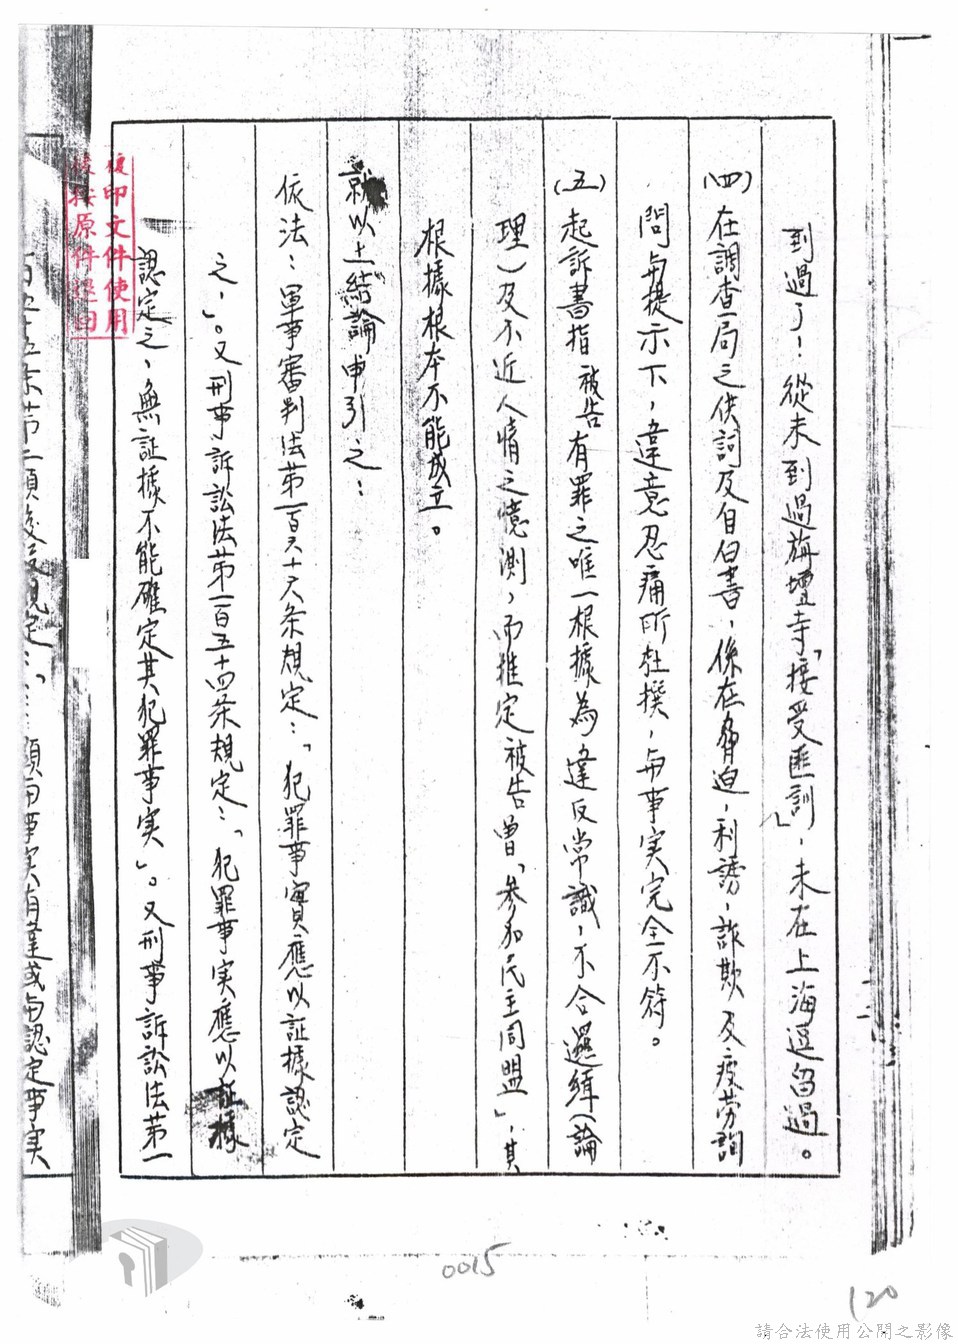 到過了！從未到過旃壇寺「接受匪訓」，未在上海逗留過。
(四)在調查局之供詞及自白書，係在脅迫，利誘，詐欺及疲劳詢
問与提示下，違意忍痛所杜撰，与事实完全不符。
(五)起訴書指被告有罪之唯一根據為違反常識，不合邏緝(論
理)及不近人情之憶測，而推定被告曾「參加民主同盟」，其
根據根本不能成立。
就以上結論申引之：
依法：軍事審判法第一百六十六条規定：「犯罪事實應以証據認定
之，」。又刑事訴訟法第一百五十四条規定：「犯罪事实應以証據
認定之，無証據不能確定其犯罪事实」。又刑事訴訟法第一
百五十五条第二項後段規定：「……顯与事实有違或与認定事实
復印文件使用
後按原件退回
0015
120
請合法使用公開之影像